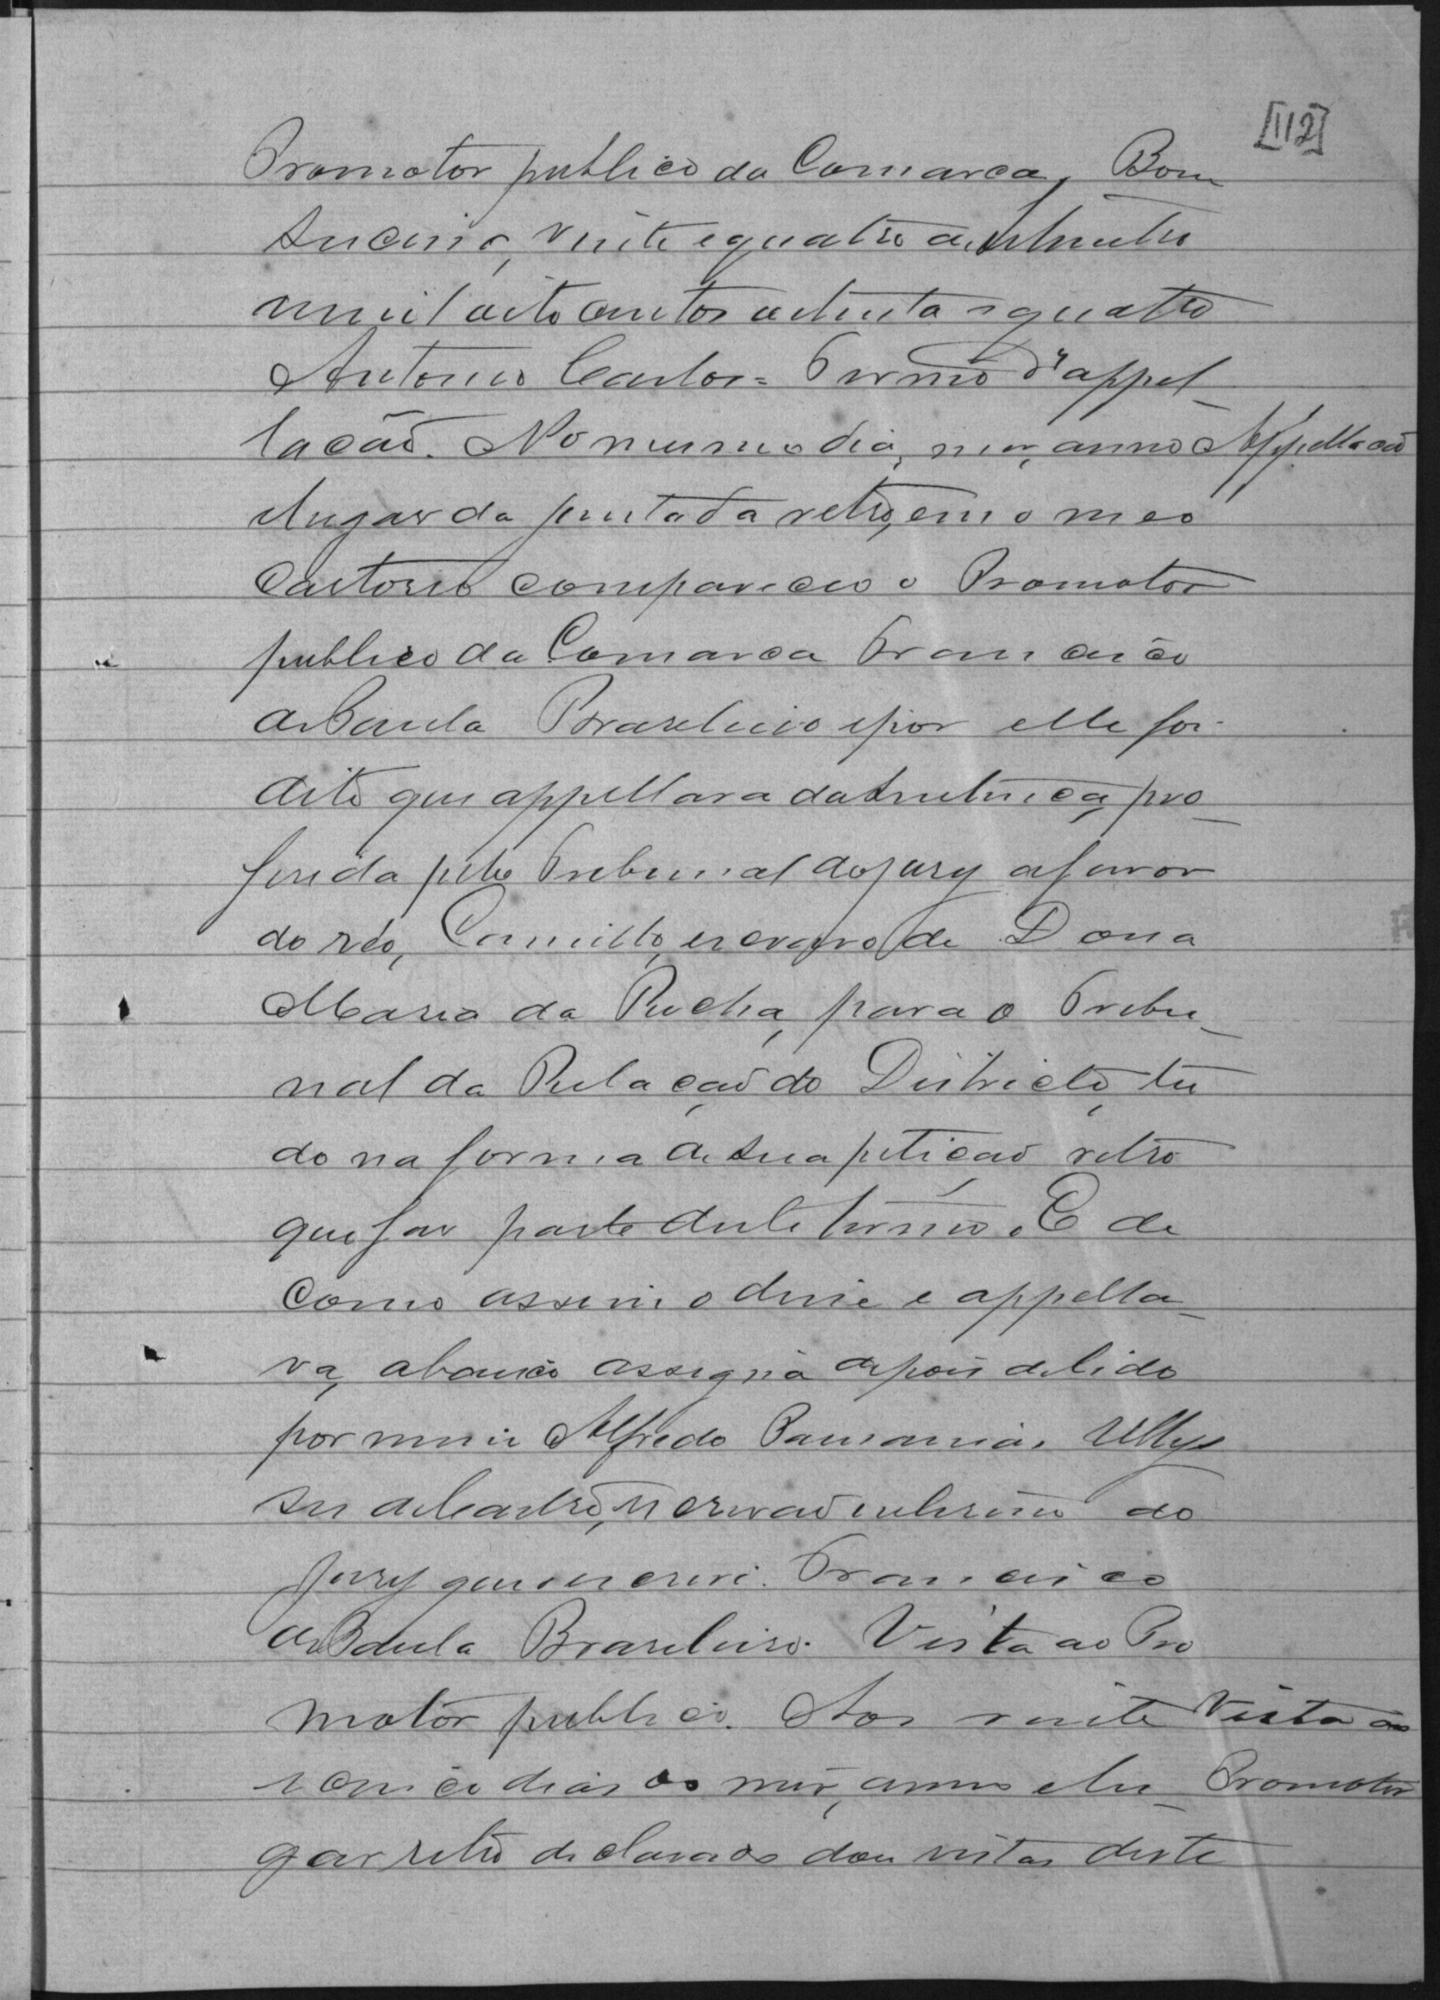 [112]
Promotor publico da Comarca, Bom
Successo, vinte e quatro de Setembro
mil oito centos oitenta e quatro
Antonio Carlos = Termo d'appel-
lação. No mesmo dia, mez, anno
Appellação
e lugar da juntada retro, em o meo
Cartorio compareceo o Promotor
publico da Comarca Francisco
de Paula Brasileiro e por elle foi
dito que appellava da sentença, pro-
ferida pelo Tribunal do jury a favor
do réo, Camillo, escravo de Dona
Maria da Rocha, para o Tribu-
nal da Relação do Districto, tu
do na forma de sua petição retro
que faz parte deste termo. E de
como assim o disse e appella-
va, abaixo assigna depois de lido
por mim Alfredo Pausanias Ullys
ses de Castro, escrivão interino do
jury que o escrevi. Francisco
de Paula Brasileiro. Vista ao Pro
motor publico. Aos vinte
Vista ao
e cinco dias do mez, anno e lu-
Promotor
gar retro declarados dou vistas deste